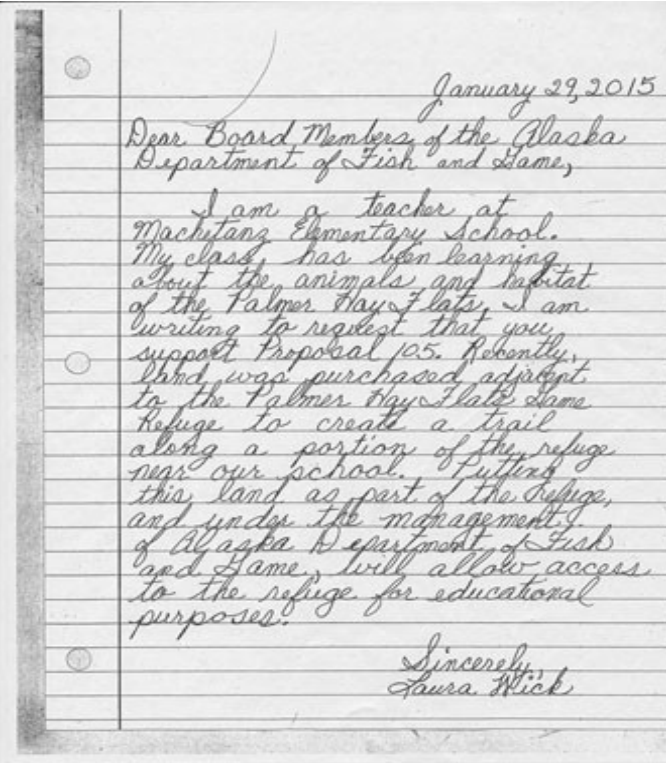 January 29, 2015
Dear Board Members of the Alaska
Department of Fish and Game,
I am a teacher at
Machetanz Elementary School.
My class has been learning
about the animals and habitat
of the Palmer Hay Flats. I am
writing to request that you
support Proposal 105. Recently,
land was purchased adjacent
to the Palmer Hay Flats Game
Refuge to create a trail
along a portion of the refuge
near our school. Putting
this land as part of the Refuge,
and under the management
of Alaska Department of Fish
and Game, will allow access
to the refuge for educational
purposes.
Sincerely,
Laura Wick